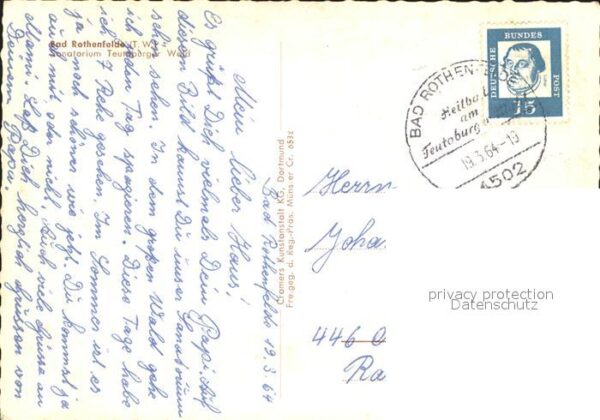 Bad Rothenfelde (T.W.)
Sanatorium Teutoburger Wald
Bad Rothenfelde 19.3.64
Mein lieber Hans,
Es grüßt Dich vielmals Dein Papi. Auf
diesem Bild kannst Du unser Sanatorium
sehen. In dem großen Wald gehe
ich jeden Tag spazieren. Diese Tage habe
ich 7 Rehe gesehen. Im Sommer ist es
ja noch schöner wie jetzt. Du kommst ja
auch mit, oder nicht. Auch viele Grüsse an
Mami. Laß Dich herzlich grüssen von
Deinem Papa.
Cramers Kunstanstalt KG, Dortmund
Freigeg. d. Reg.-Präs. Münster Cr. 653
DEUTSCHE BUNDESPOST
15
BAD ROTHEN
Heilba
am
Teutoburg
19.3.64-19
4502
Herrn
Joha
446
privacy protection
Datenschutz